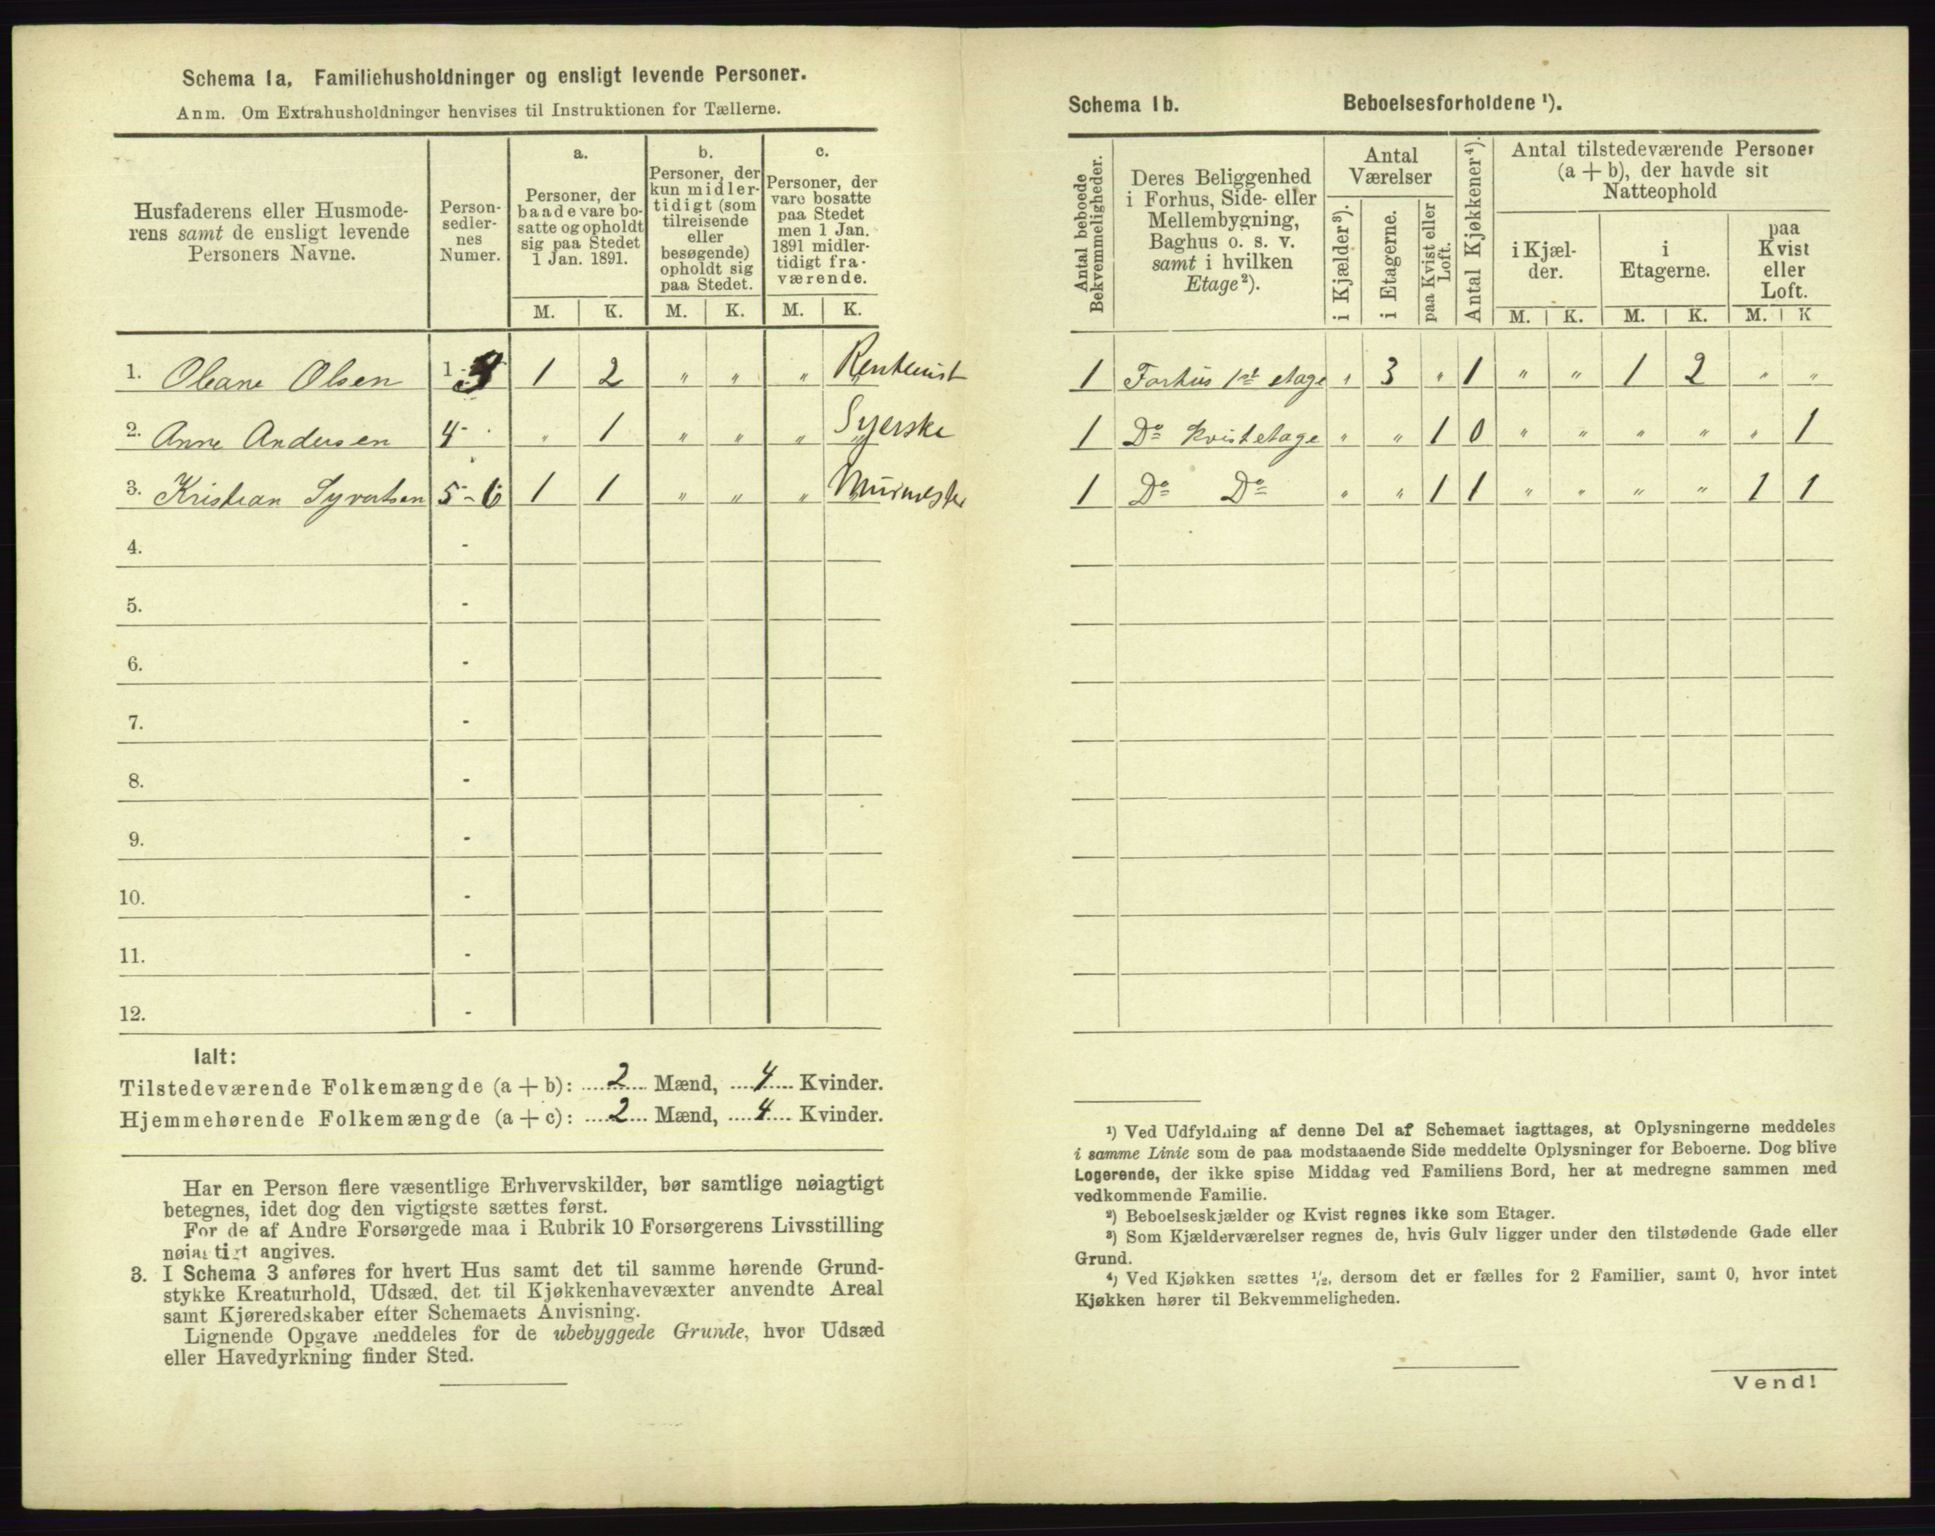 Schema 1a, Familiehusholdninger og ensligt levende Personer.
Anm. Om Extrahusholdninger henvises til Instruktionen for Tællerne.
Husfaderens eller Husmode-
rens samt de ensligt levende
Personers Navne.
Person-
sedler-
nes
Numer.
a.
Personer, der
baade vare bo-
satte og opholdt
sig paa Stedet
1 Jan. 1891.
b.
Personer, der
kun midler-
tidigt (som
tilreisende
eller
besøgende)
opholdt sig
paa Stedet.
c.
Personer, der
vare bosatte
paa Stedet
men 1 Jan.
1891 midler-
tidigt fra-
værende.
M. K. M. K. M. K.
1. Oleane Olsen 1 - 3 1 2 " " " " Rentenist
2. Anne Andersen 4 - " 1 " " " " Syerske
3. Kristian Syvertsen 5 - 6 1 1 " " " " Murmester
4. -
5. -
6. -
7. -
8. -
9. -
10. -
11. -
12. -
Ialt:
Tilstedeværende Folkemængde (a + b): 2 Mænd, 4 Kvinder.
Hjemmehørende Folkemængde (a + c): 2 Mænd, 4 Kvinder.
Har en Person flere væsentlige Erhvervskilder, bør samtlige nøiagtigt
betegnes, idet dog den vigtigste sættes først.
For de af Andre Forsørgede maa i Rubrik 10 Forsørgerens Livsstilling
nøiagtigt angives.
3. I Schema 3 anføres for hvert Hus samt det til samme hørende Grund-
stykke Kreaturhold, Udsæd, det til Kjøkkenhavevæxter anvendte Areal
samt Kjøreredskaber efter Schemaets Anvisning.
Lignende Opgave meddeles for de ubebyggede Grunde, hvor Udsæd
eller Havedyrkning finder Sted.
Schema 1b. Beboelsesforholdene ¹).
Antal beboede
Bekvemmeligheder.
Deres Beliggenhed
i Forhus, Side- eller
Mellembygning,
Baghus o. s. v.
samt i hvilken
Etage²).
Antal
Værelser
i Kjælder³).
i Etagerne.
paa Kvist eller
Loft.
Antal Kjøkkener⁴).
Antal tilstedeværende Personer
(a + b), der havde sit
Natteophold
i Kjæl-
der.
i
Etagerne.
paa
Kvist
eller
Loft.
M. K. M. K. M. K
1 Forhus 1ste etage " 3 " 1 " " 1 2 " "
1 Do Kvistetage " " 1 0 " " " " " 1
1 Do Do " " 1 1 " " " " 1 1
¹) Ved Udfyldning af denne Del af Schemaet iagttages, at Oplysningerne meddeles
i samme Linie som de paa modstaaende Side meddelte Oplysninger for Beboerne. Dog blive
Logerende, der ikke spise Middag ved Familiens Bord, her at medregne sammen med
vedkommende Familie.
²) Beboelseskjælder og Kvist regnes ikke som Etager.
³) Som Kjælderværelser regnes de, hvis Gulv ligger under den tilstødende Gade eller
Grund.
⁴) Ved Kjøkken sættes ½, dersom det er fælles for 2 Familier, samt 0, hvor intet
Kjøkken hører til Bekvemmeligheden.
Vend!